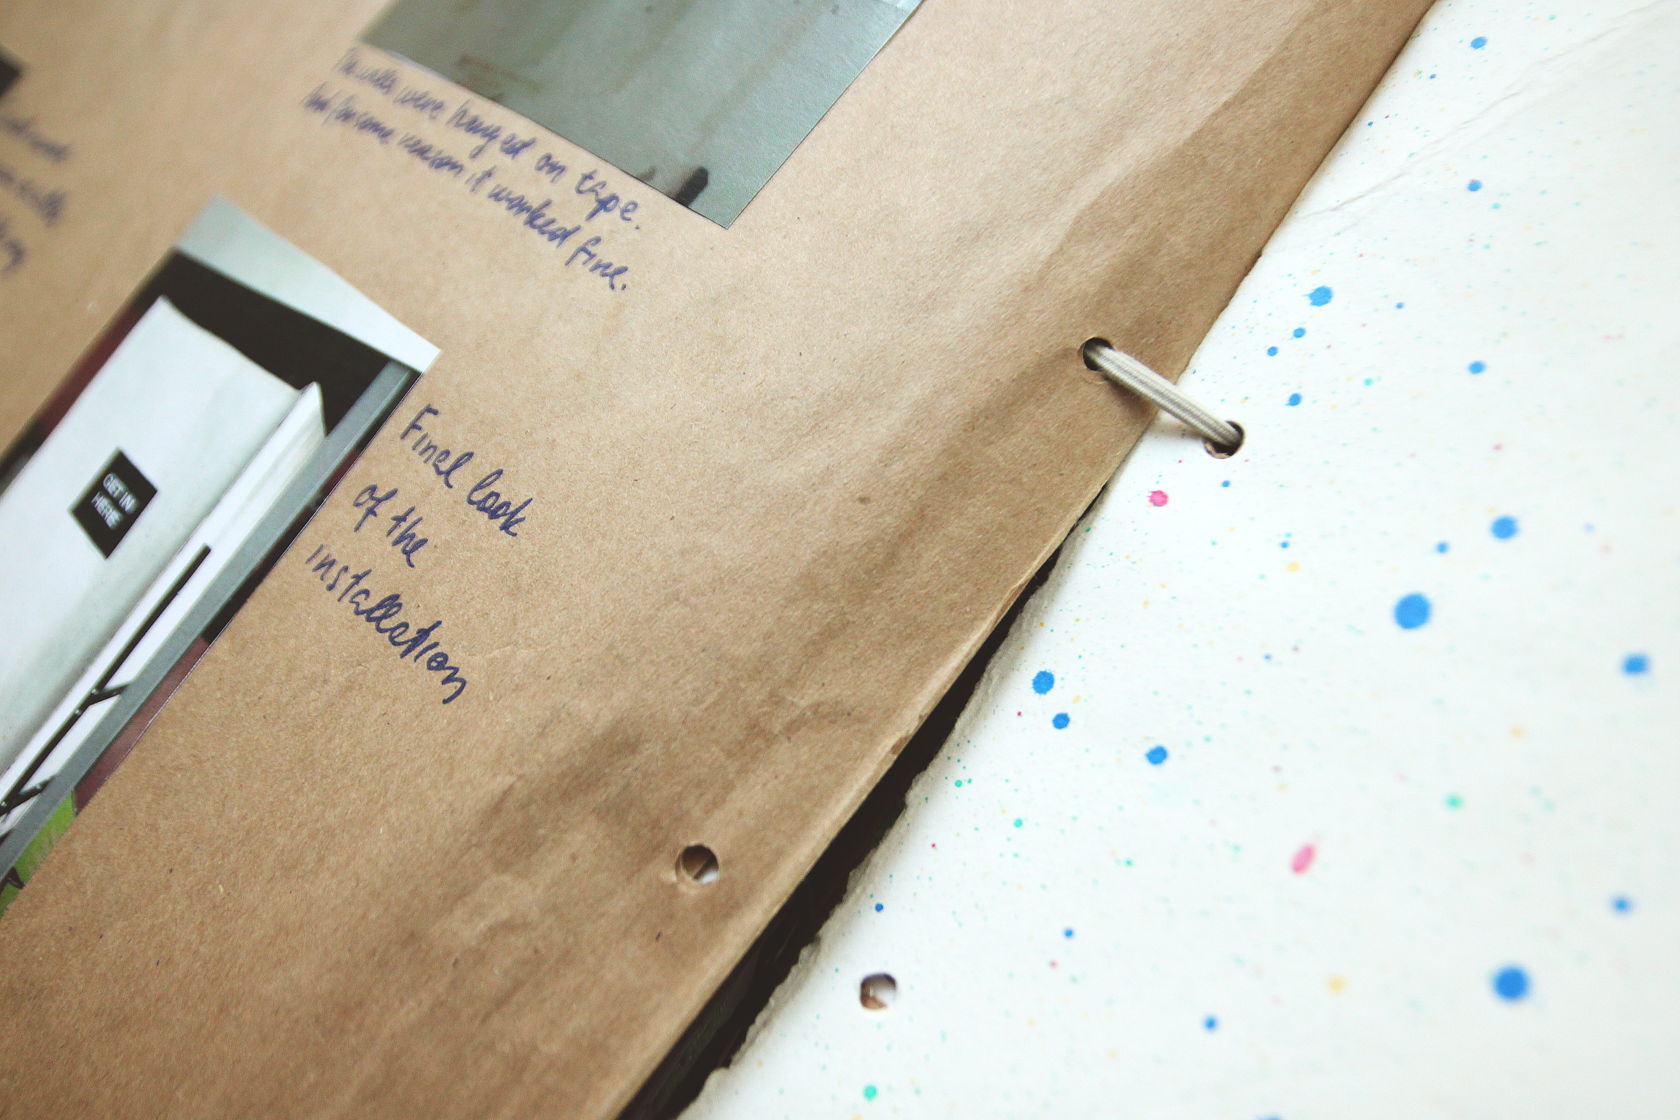 The walls were hanged on tape.
And for some reason it worked fine.
GET IN
HERE
Final look
of the
installation